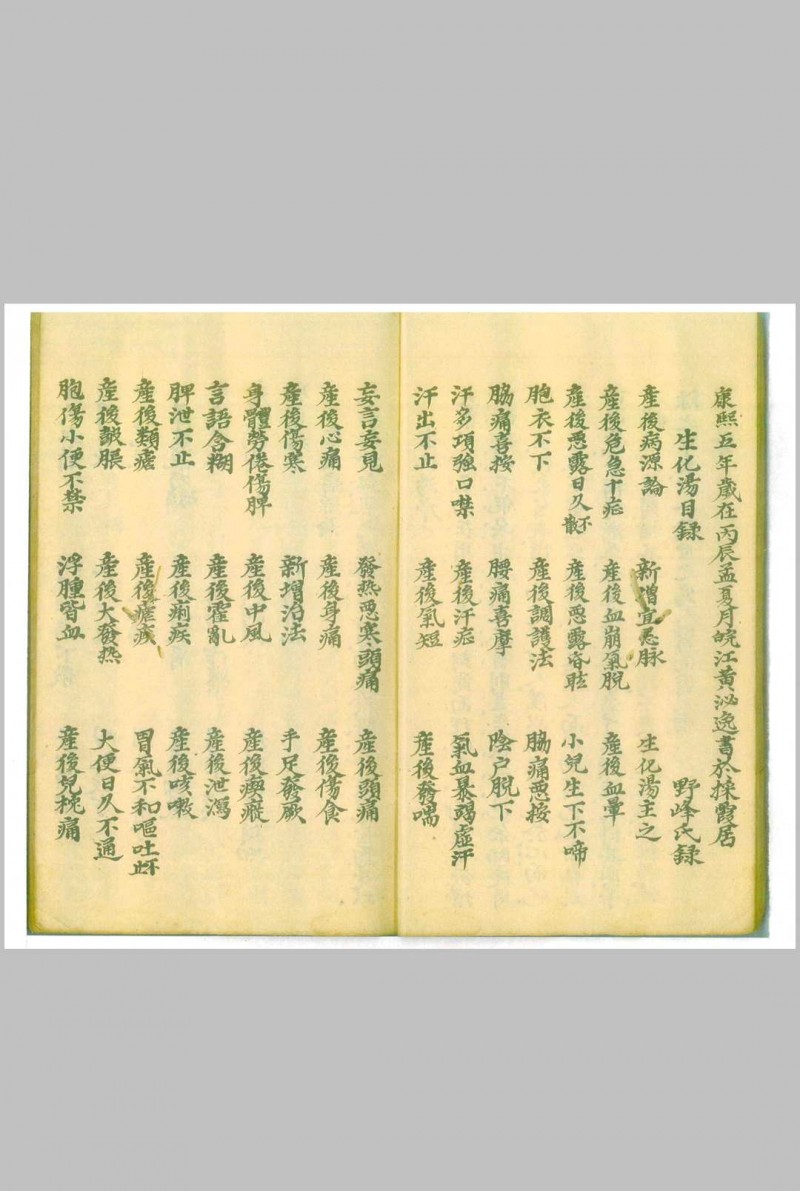 康熙五年歲在丙辰孟夏月皖江黃泌逸書於採霞居
生化湯目錄 野峰氏錄
產後病源論 新增宜忌脉 生化湯主之
產後危急十症 產後血崩氣脫 產後血暈
產後惡露日久不散 產後惡露昏眩 小兒生下不啼
胞衣不下 產後調護法 脇痛惡按
脇痛喜按 腰痛喜摩 陰户脫下
汗多項強口噤 產後汗症 氣血暴弱虛汗
汗出不止 產後氣短 產後發喘
妄言妄見 發熱惡寒頭痛 產後頭痛
產後心痛 產後身痛 產後傷食
產後傷寒 新增治法 手足發厥
身體勞倦傷脾 產後中風 產後瘈瘲
言語含糊 產後霍亂 產後泄瀉
脾泄不止 產後痢疾 產後咳嗽
產後類瘧 產後瘧疾 胃氣不和嘔吐不止
產後皷脹 產後大發热 大便日久不通
胞傷小便不禁 浮腫皆血 產後兒枕痛